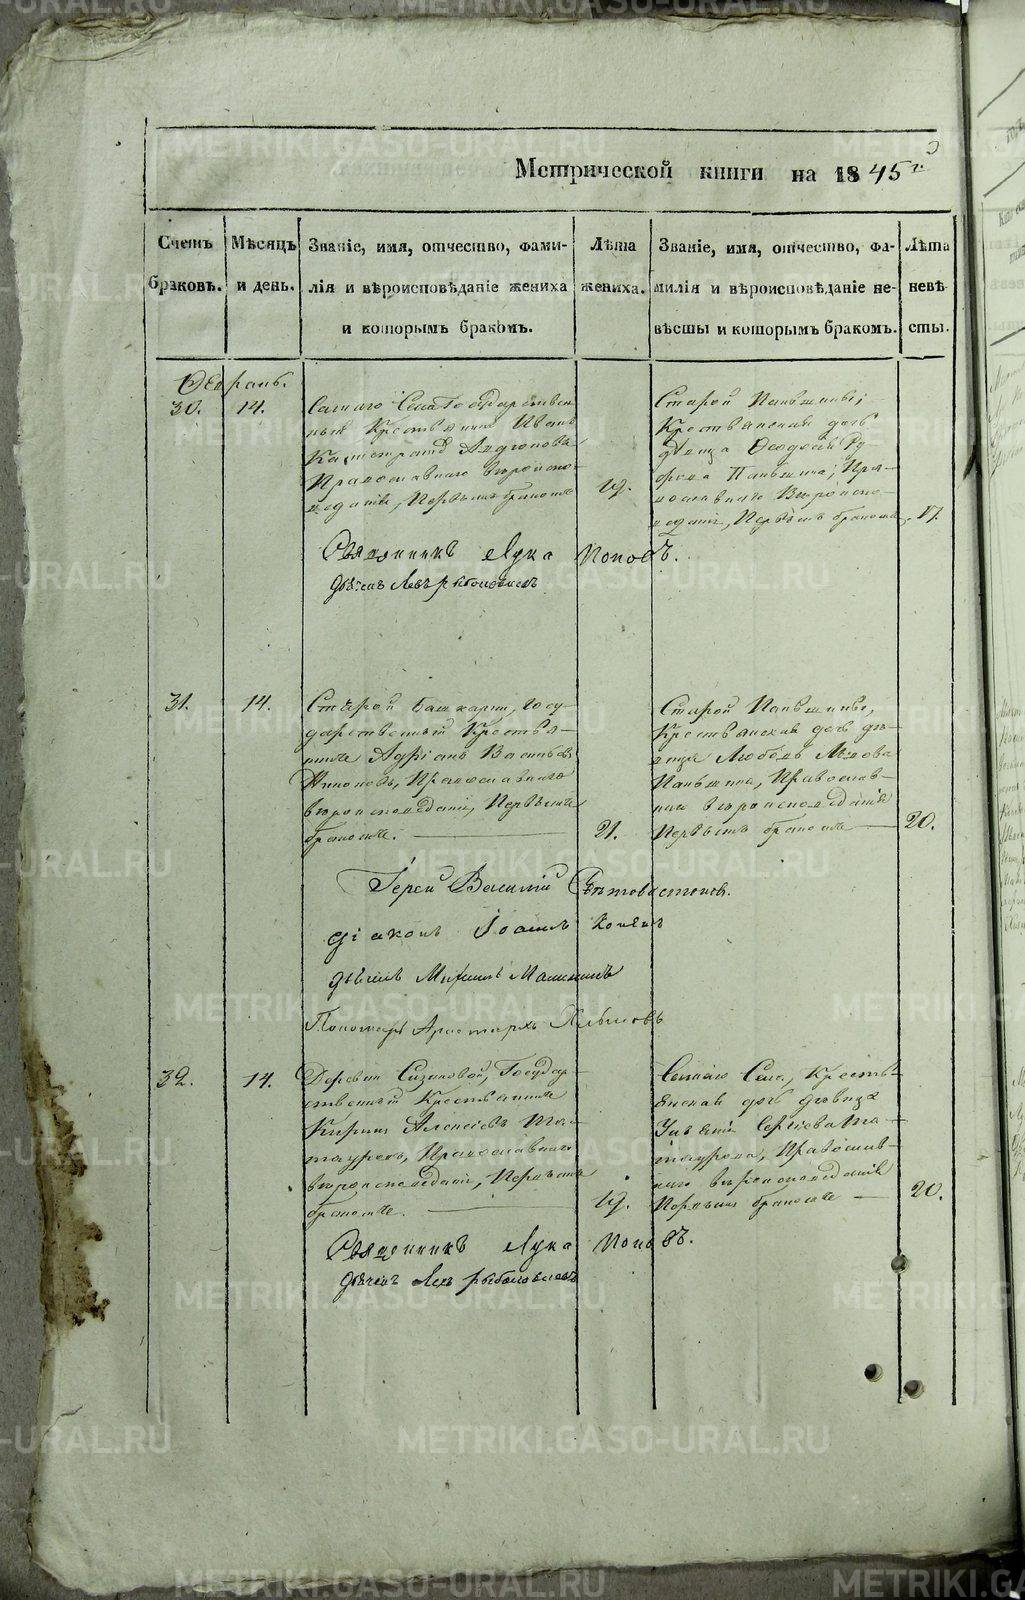 Метрической книги на 1845 г.
Счетъ браковъ.
Мѣсяцъ и день.
Званіе, имя, отчество, фами-
лія и вѣроисповѣданіе жениха
и которымъ бракомъ.
Лѣта жениха.
Званіе, имя, отчество, фа-
милія и вѣроисповѣданіе не-
вѣсты и которымъ бракомъ.
Лѣта невѣ-
сты.
Февраль.
30. 14.
Сего Села Государствен
ный Крестьянинъ Иванъ
Православнаго вѣроиспо-
вѣданія, Первымъ бракомъ
19.
Старой Паньшины,
Крестьянская дочь
дѣвица Феодосья
Паньшина, Пра-
вославнаго Вѣроиспо-
вѣданія, Первымъ бракомъ, 17.
Священникъ Лука Поповъ.
31. 14.
Старой Башкарки, Госу-
дарственный Крестья-
нинъ Адріанъ Васильевъ
Православнаго
вѣроисповеданія, Первымъ
бракомъ.
21.
Старой Паньшины,
Крестьянская дочь дѣ-
вица Любовь
Паньшина, Православ-
наго вѣроисповеданія
Первымъ бракомъ
20.
Іерей Василій
діаконъ Іоаннъ
дьячекъ Михаилъ
Пономарь Аристархъ
32. 14.
Деревни Сизиковой, Государ-
ственный Крестьянинъ
Кирилъ Алексѣевъ Та-
тауровъ, Православнаго
вѣроисповеданія, Первымъ
бракомъ.
19.
Сего Села, Кресть-
янская дочь дѣвица
Сергіева Та-
таурова, Православ-
наго вѣроисповеданія
Первымъ бракомъ
20.
Священникъ Лука Поповъ.
METRIKI.GASO-URAL.RU